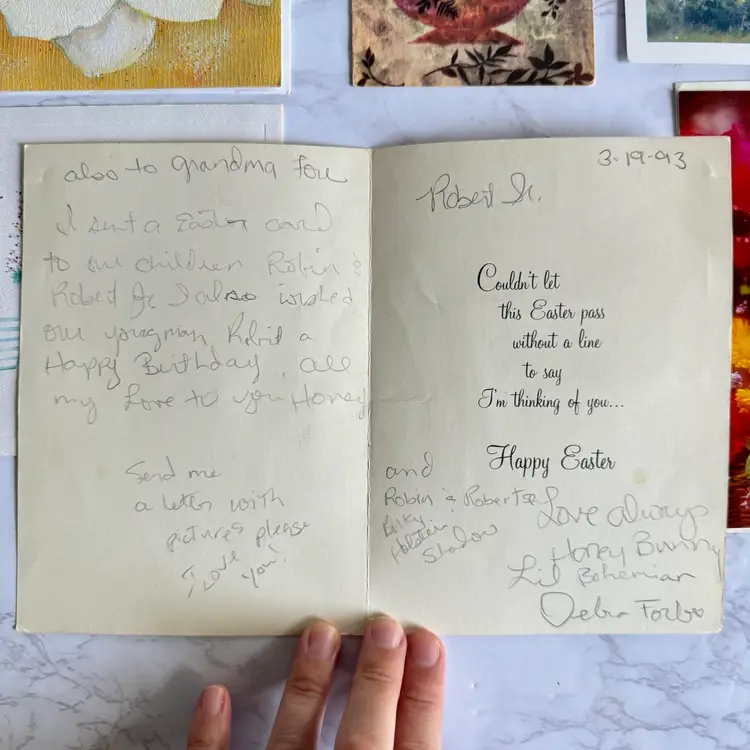 also to grandma too
I sent a Easter card
to our children Robin &
Robert Jr I also wished
our young man Robert a
Happy Birthday, all
my Love to you Honey
Send me
a letter with
pictures please
I Love
you!
3-19-93
Robert Sr.
Couldn't let
this Easter pass
without a line
to say
I'm thinking of you...
Happy Easter
and
Robin & Robert
Holstein
Shadow
Love always
Honey Bunny
Lil Bohemian
Debra Forbes